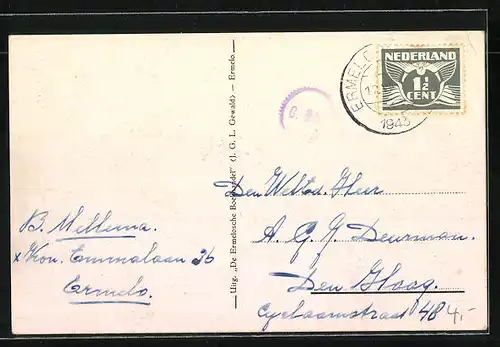 NEDERLAND
1½
CENT
ERMELO
1943
Uitg. „De Ermelosche Boekhandel" (J. G. L. Gewald) — Ermelo.
Den Weled. Heer
A. G. J. Deurman.
Den Haag.
Cyclaamstraat 48 4,-
B. Mellema.
x Kon. Emmalaan 26
Ermelo.